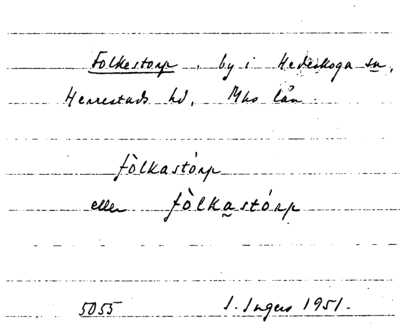 Folkestorp, by i Hedeskoga sn,
Herrestads hd, Mhs län.
fòlkastórp
eller fòlkastórp
5055 I. Ingers 1951.